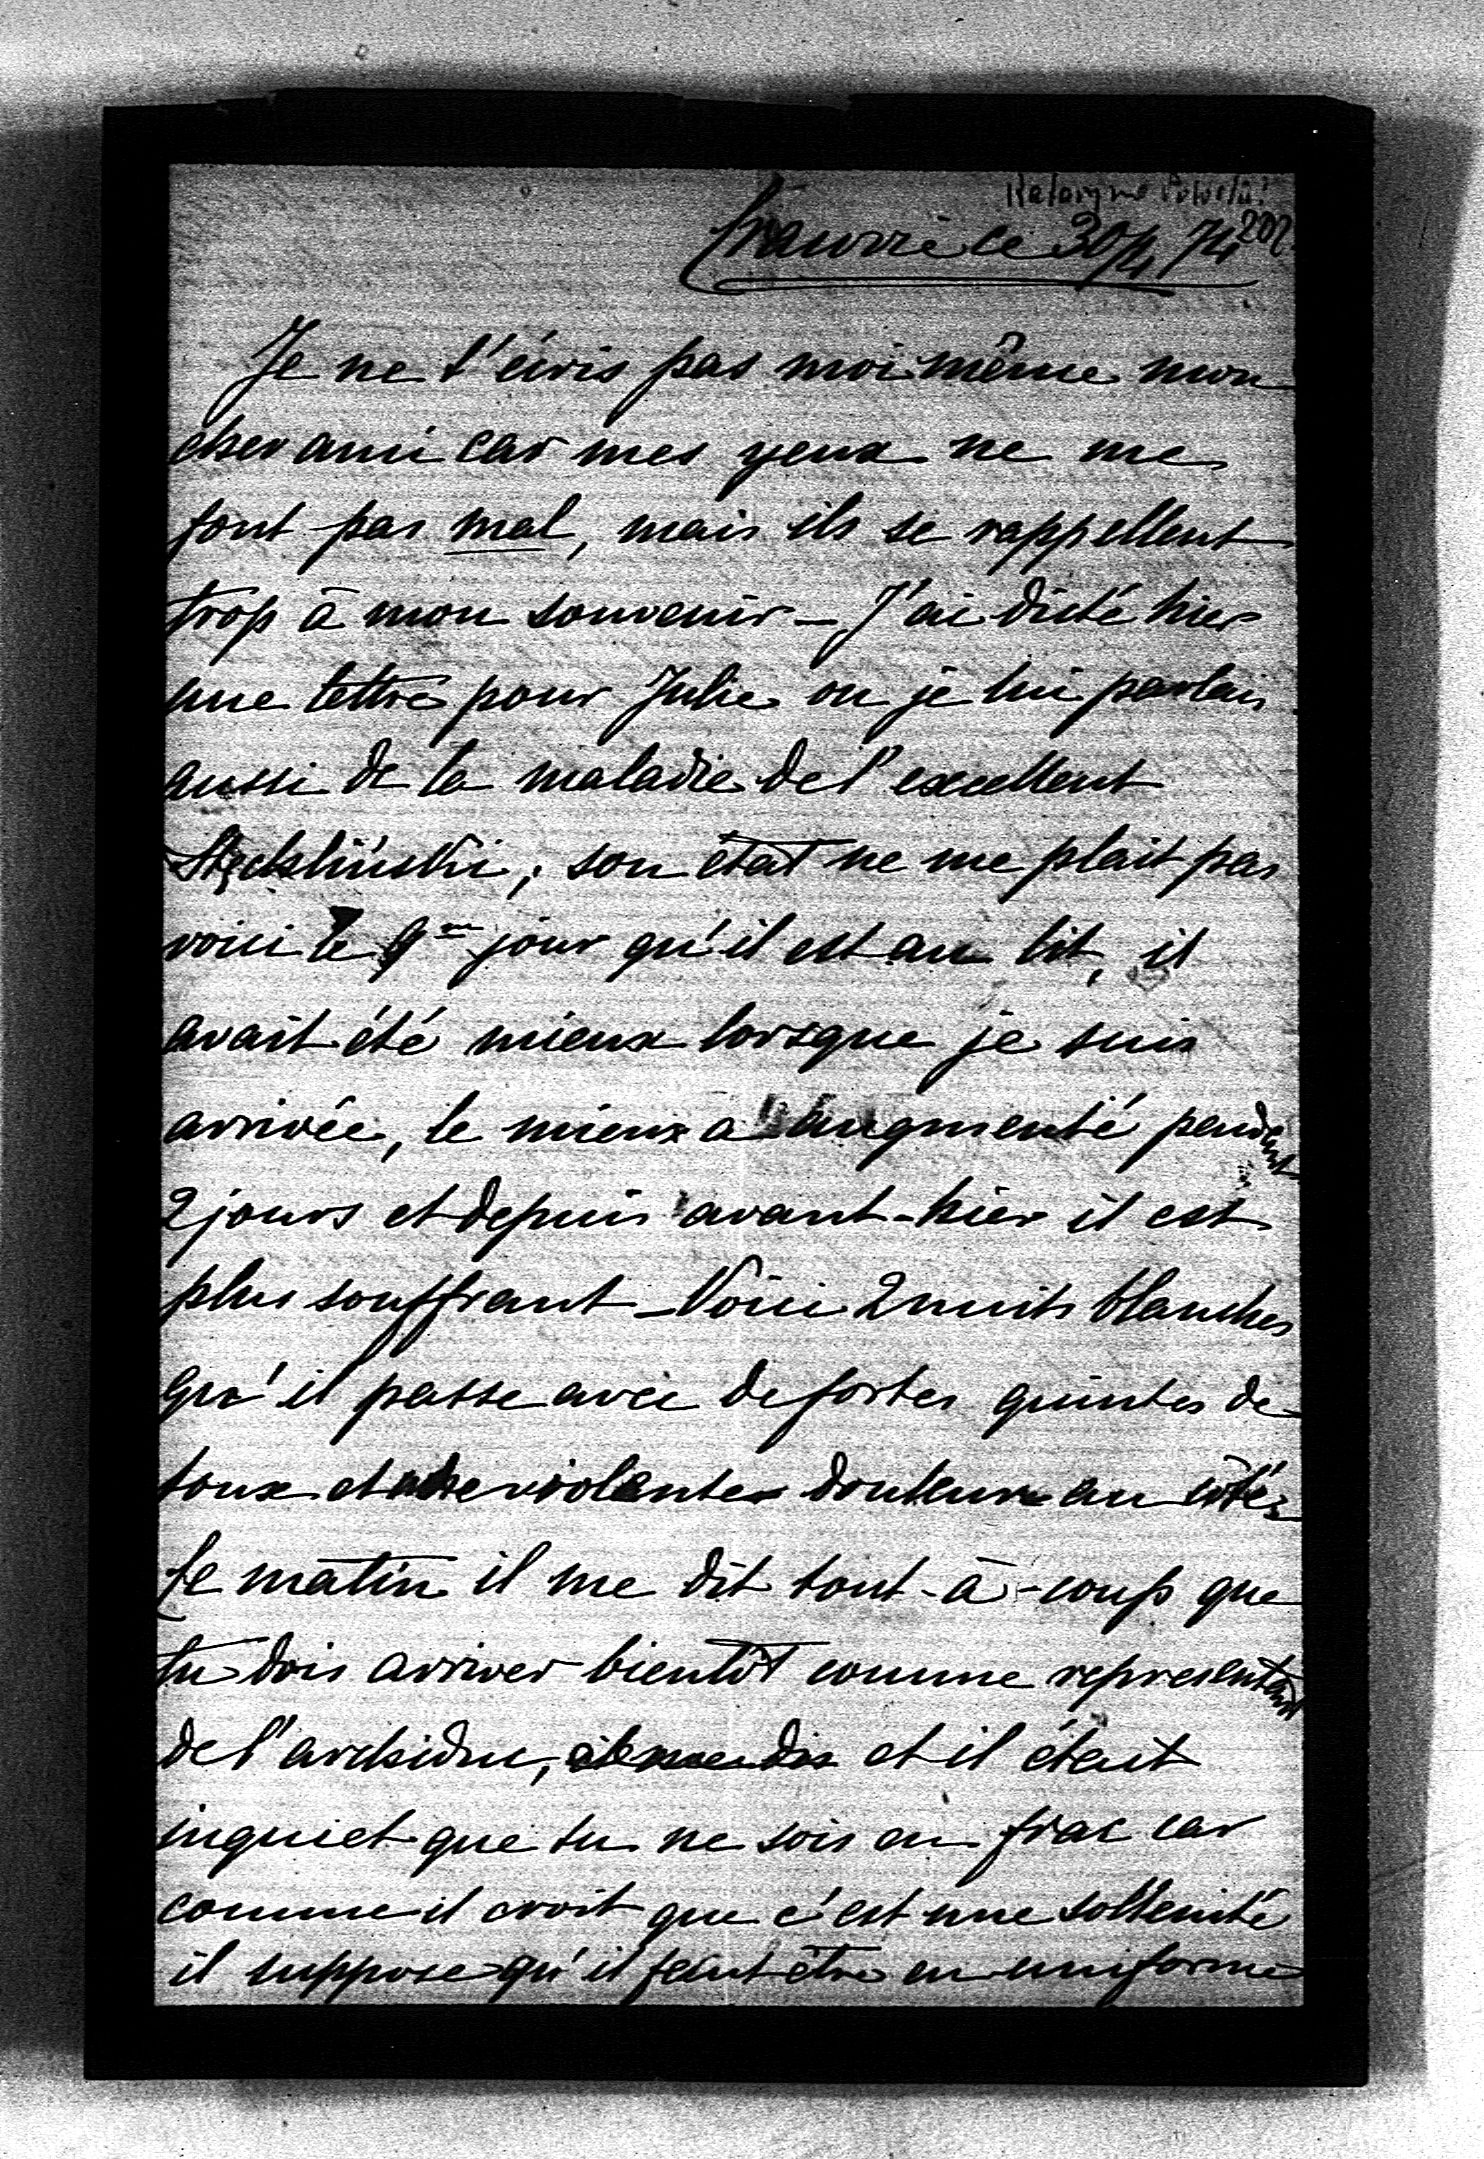 202
ce 30/4 74
Je ne t'écris pas moi même mon
cher ami car mes yeux ne me
font pas mal, mais ils se rappellent
trop à mon souvenir – J'ai dicté hier
une lettre pour Julie ou je lui parlais
aussi de la maladie de l'excellent
son état ne me plait pas
voici le 9me jour qu'il est au lit, il
avait été mieux lorsque je suis
arrivée, le mieux a augmenté pendant
2 jours et depuis avant-hier il est
plus souffrant – Voici 2 nuits blanches
qu'il passe avec de fortes quintes de
toux et de violentes douleurs au côté
Le matin il me dit tout-à-coup que
tu dois arriver bientôt comme representant
de l'archiduc, et il était
inquiet que tu ne sois en frac car
comme il croit que c'est une sollenité
il suppose qu'il faut être en uniforme